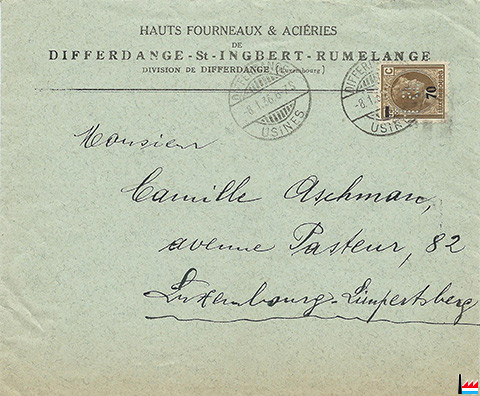 HAUTS FOURNEAUX & ACIÉRIES
DE
DIFFERDANGE-St-INGBERT-RUMELANGE
DIVISION DE DIFFERDANGE (Luxembourg)
DIFFERDANGE
-8.1.36.
USINES
DIFFERDANGE
-8.1.36
USINES
70
Monsieur
Camille Aschman,
avenue Pasteur, 82
Luxembourg-Limpertsberg